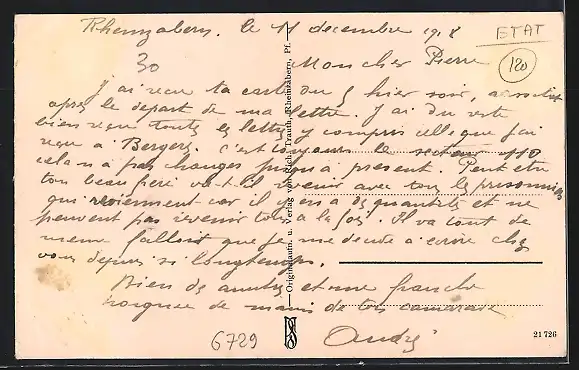 Rheinzabern, le 11 décembre 1918
ETAT
30
Mon cher Pierre
120
J'ai reçu ta carte du 5 hier soir, aussitôt
après le départ de ma lettre. J'ai du reste
bien reçu toutes les lettres y compris celle que j'ai
reçu à Bergerz, c'est toujours le secteur 110
cela n'a pas changer jusqu'à présent. Peut être
ton beau frère va-t-il revenir avec tous les prisonniers
qui reviennent car il y en a des quantités et ne
peuvent pas revenir tous à la fois. Il va tout de
même falloir que je me décide à écrire chez
vous depuis si longtemps.
Bien des amitiés et une franche
poignée de mains de ton camarade
André
6729
21726
Originalaufn. u. Verlag von Rich. Trauth, Rheinzabern, Pf.